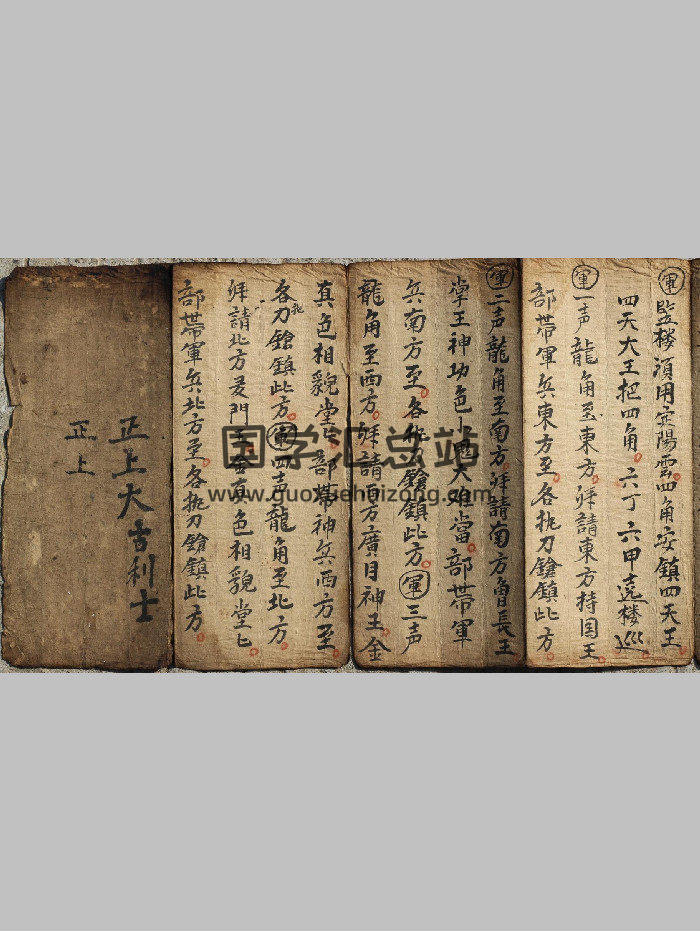 軍監楼須用陽雲四角安鎮四天王
四天大王把四角六丁六甲遶楼巡
軍一声龍角至東方拜請東方持国王
部帶軍兵東方至各执刀鎗鎮此方
軍二声龍角至南方拜請南方曾長王
掌王神功色大當部帶軍
兵南方至各执刀鎗鎮此方軍三声
龍角至西方拜請西方廣目神王金
真色相貌堂匕部帶神兵西方至
各执刀鎗鎮此方軍四声龍角至北方
拜請北方多門王金真色相貌堂匕
部帶軍兵北方至各执刀鎗鎮此方
正上大吉利士
正上
国学汇总站
www.guoxuehuizong.com